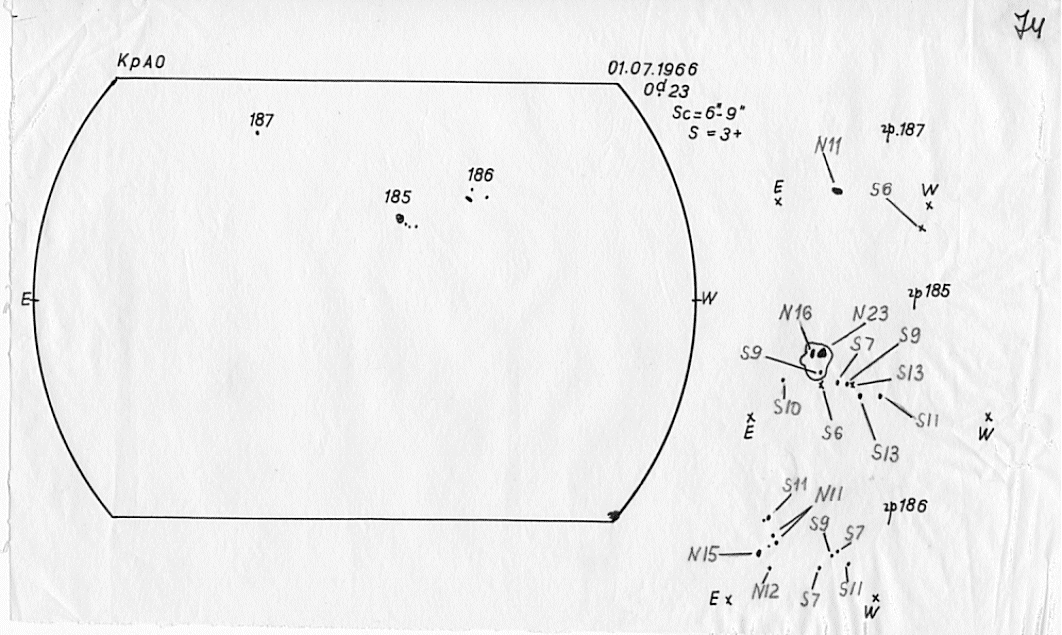 74
КрАО
01.07.1966
0d.23
Sc=6"-9"
S = 3+
187
186
185
E
W
гр.187
N11
E
S6
W
гр185
N16
N23
S9
S7
S9
S13
S10
S11
E
S6
W
S13
гр186
S11
N11
S9
S7
N15
N12
S7
S11
E
W